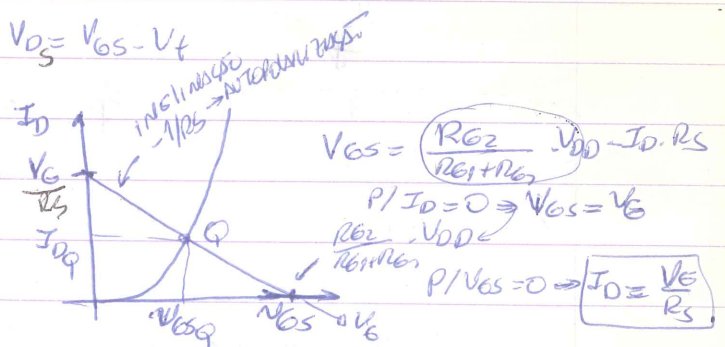 V_DS = V_GS - V_t
INCLINAÇÃO
-1/RS → AUTOPOLARIZAÇÃO
I_D
V_G/R_S
I_DQ
Q
V_GSQ
V_GS
V_G
V_GS = R_G2/(R_G1+R_G2) · V_DD - I_D · R_S
P/ I_D = 0 ⇒ V_GS = V_G
R_G2/(R_G1+R_G2) · V_DD
P/ V_GS = 0 → I_D = V_G/R_S